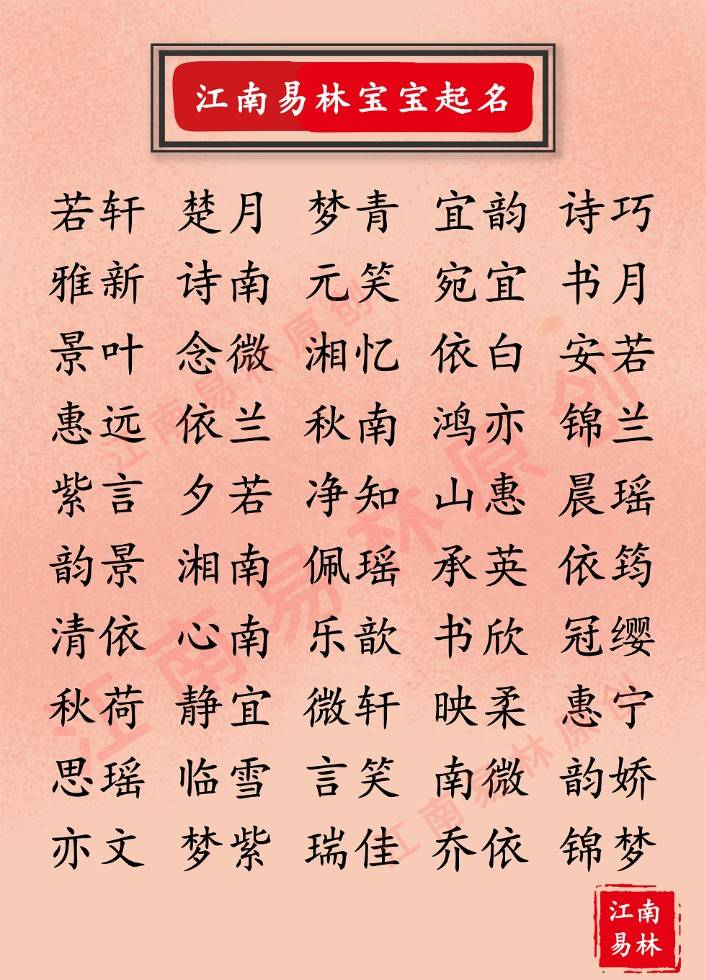 江南易林宝宝起名
若轩 楚月 梦青 宜韵 诗巧
雅新 诗南 元笑 宛宜 书月
景叶 念微 湘忆 依白 安若
惠远 依兰 秋南 鸿亦 锦兰
紫言 夕若 净知 山惠 晨瑶
韵景 湘南 佩瑶 承英 依筠
清依 心南 乐歆 书欣 冠缨
秋荷 静宜 微轩 映柔 惠宁
思瑶 临雪 言笑 南微 韵娇
亦文 梦紫 瑞佳 乔依 锦梦
江南易林原创
江南易林原创
江南易林原创
江南
易林